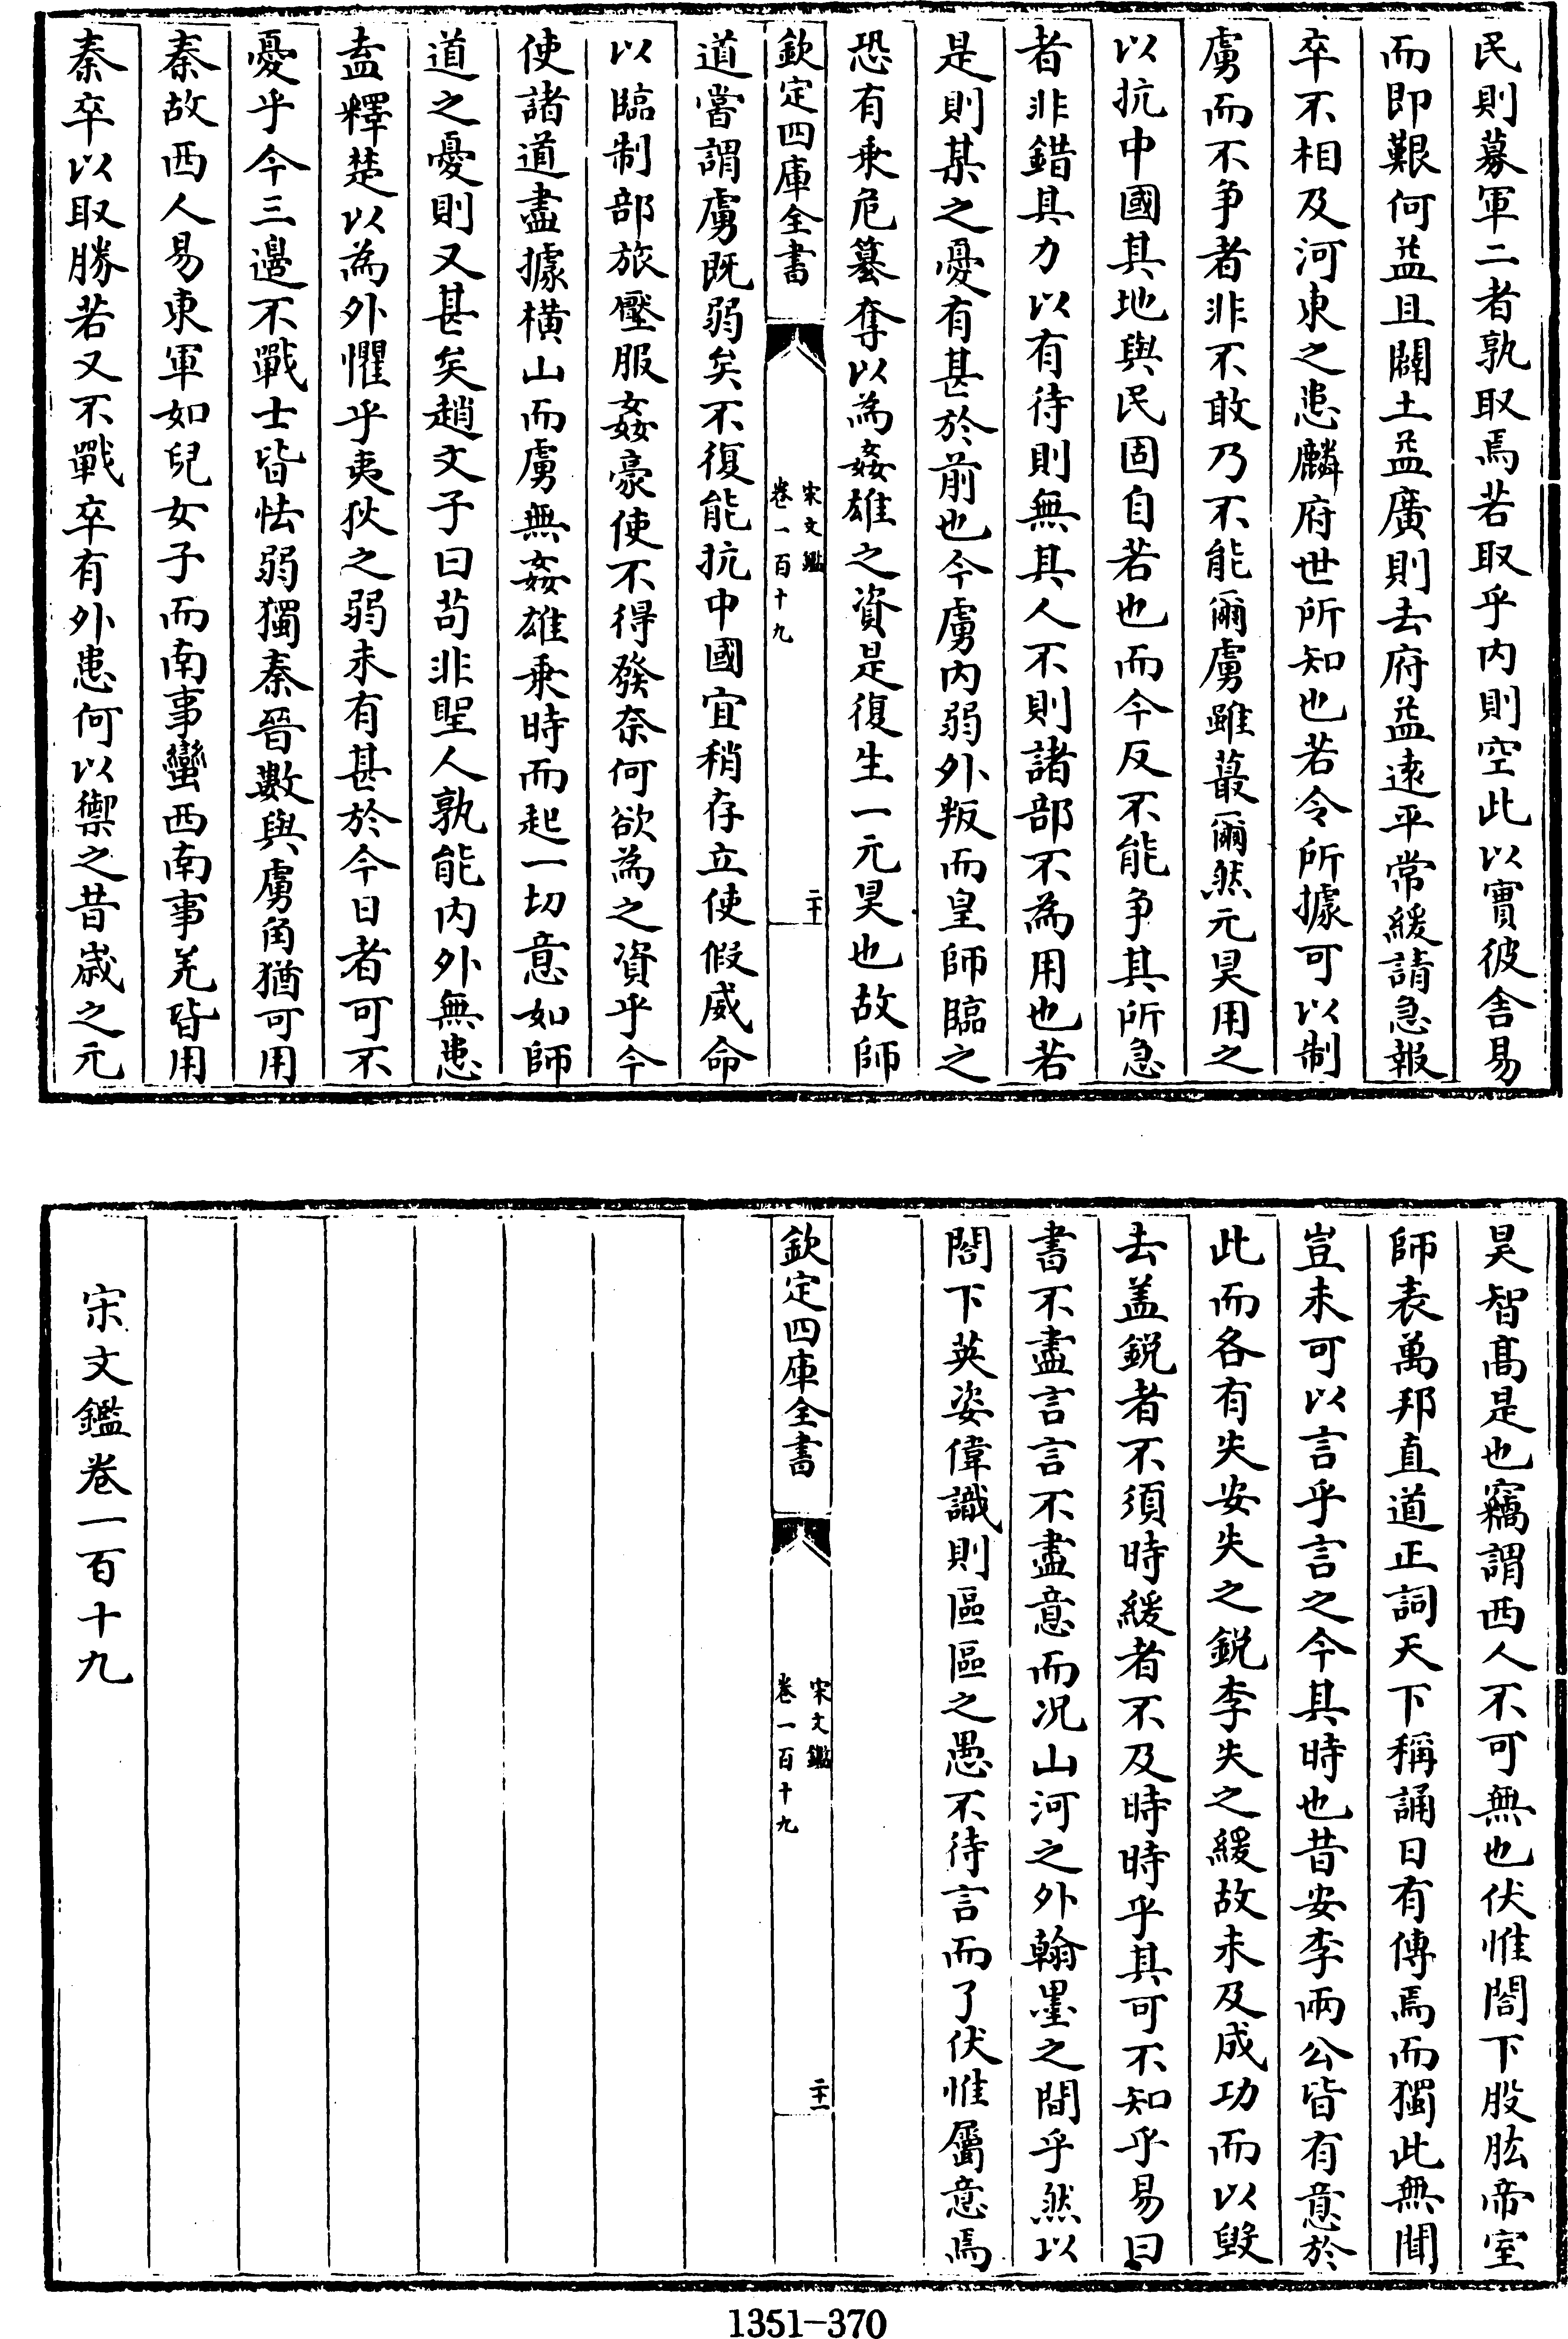 民則募軍二者孰取焉若取乎内則空此以實彼舍易
而即艱何益且闢土益廣則去府益逺平常緩請急報
卒不相及河東之患麟府世所知也若令所據可以制
虜而不争者非不敢乃不能爾虜雖蕞爾然元昊用之
以抗中國其地與民固自若也而今反不能争其所急
者非錯其力以有待則無其人不則諸部不為用也若
是則某之憂有甚於前也今虜内弱外叛而皇師臨之
恐有乗危簒奪以為姦雄之資是復生一元昊也故師
欽定四庫全書
宋文鑑
卷一百十九
二十
道嘗謂虜既弱矣不復能抗中國宜稍存立使假威命
以臨制部旅壓服姦豪使不得發奈何欲為之資乎今
使諸道盡據横山而虜無姦雄乗時而起一切意如師
道之憂則又甚矣趙文子曰苟非聖人孰能内外無患
盍釋楚以為外懼乎夷狄之弱未有甚於今日者可不
憂乎今三邊不戰士皆怯弱獨秦晉數與虜角猶可用
秦故西人易東軍如兒女子而南事蠻西南事羌皆用
秦卒以取勝若又不戰卒有外患何以禦之昔歳之元
昊智髙是也竊謂西人不可無也伏惟閤下股肱帝室
師表萬邦直道正詞天下稱誦日有傳焉而獨此無聞
豈未可以言乎言之今其時也昔安李兩公皆有意於
此而各有失安失之鋭李失之緩故未及成功而以毀
去盖鋭者不須時緩者不及時時乎其可不知乎易曰
書不盡言言不盡意而况山河之外翰墨之間乎然以
閤下英姿偉識則區區之愚不待言而了伏惟屬意焉
欽定四庫全書
宋文鑑
卷一百十九
二十一
宋文鑑卷一百十九
1351-370